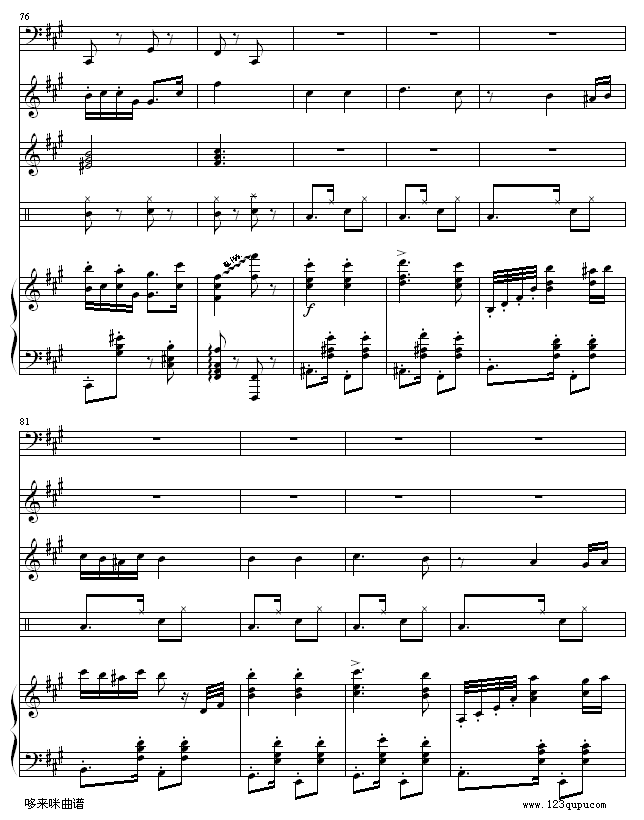 76
gliss.
f
81
哆来咪曲谱
www.123qupu.com